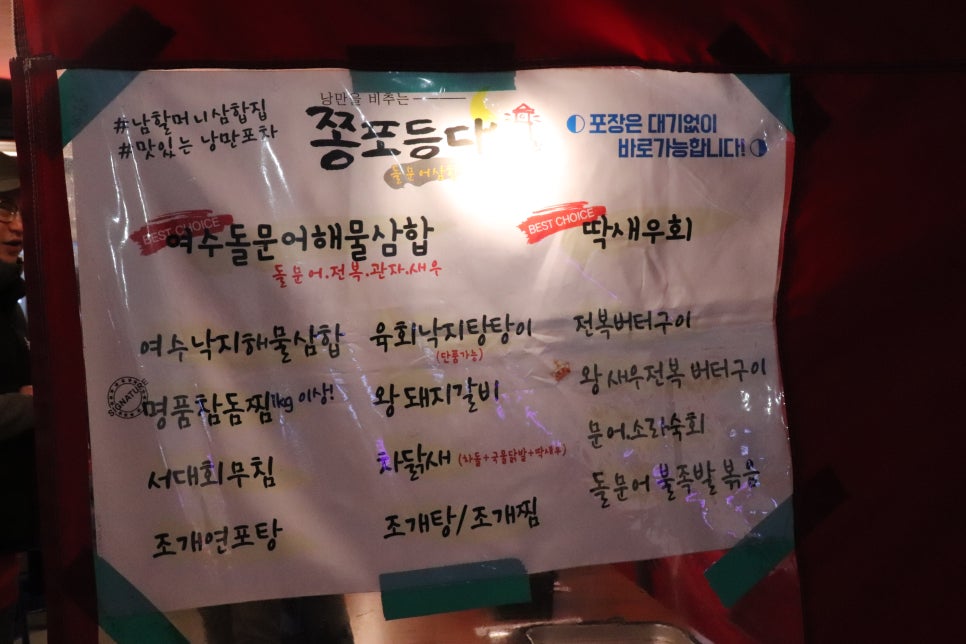 #남할머니삼합집
#맛있는 낭만포차
낭만을 비추는
쫑포등대
돌문어삼합
포장은 대기없이
바로가능합니다!
BEST CHOICE
여수돌문어해물삼합
돌문어.전복.관자.새우
BEST CHOICE
딱새우회
여수낙지해물삼합
SIGNATURE
명품참돔찜 1kg 이상!
서대회무침
조개연포탕
육회낙지탕탕이
(단품가능)
왕돼지갈비
차닭새 (차돌+국물닭발+딱새우)
조개탕/조개찜
전복버터구이
왕새우전복 버터구이
문어.소라숙회
돌문어 불족발 볶음